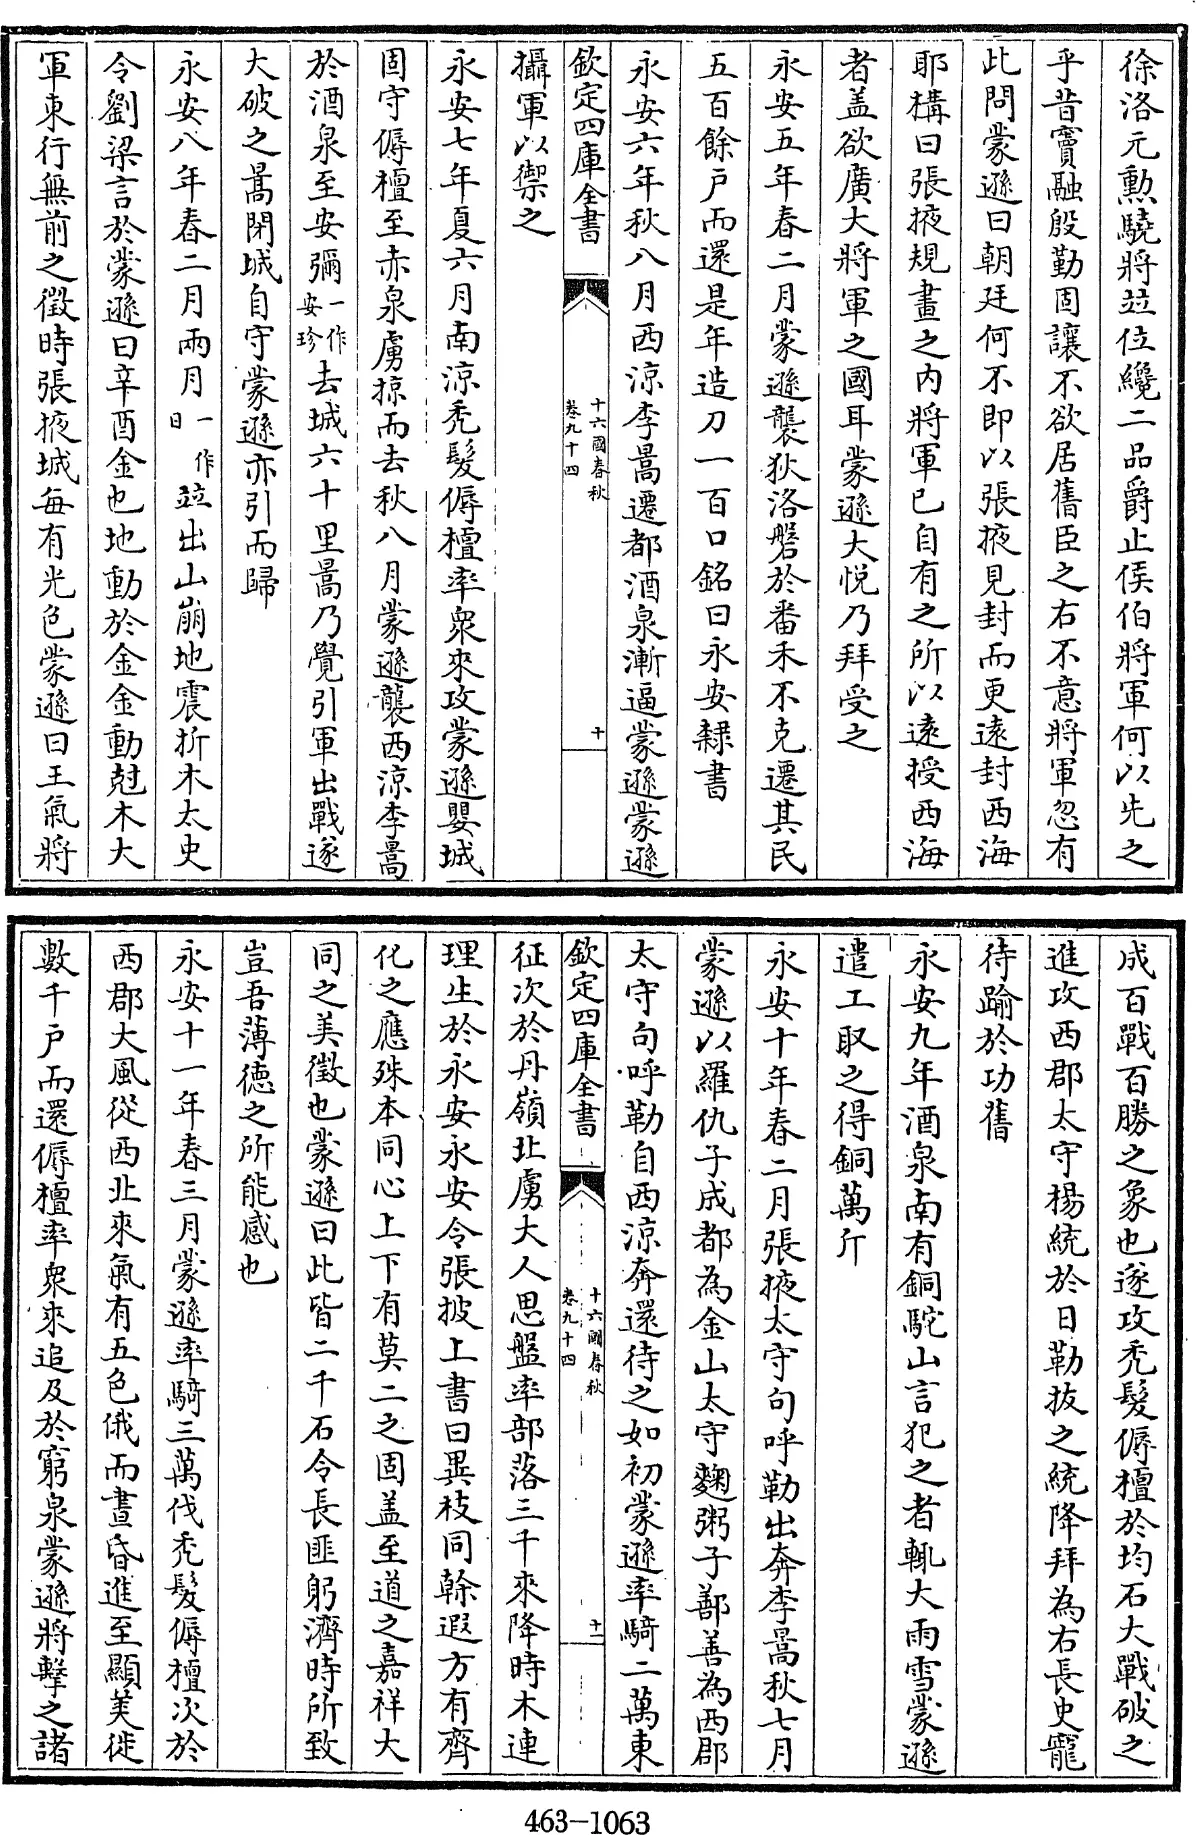 徐洛元勲驍將竝位纔二品爵止侯伯將軍何以先之
乎昔竇融殷勤固讓不欲居舊臣之右不意將軍忽有
此問蒙遜曰朝廷何不即以張掖見封而更逺封西海
耶構曰張掖規畫之内將軍已自有之所以逺授西海
者盖欲廣大將軍之國耳蒙遜大悦乃拜受之
永安五年春二月蒙遜襲狄洛磐於番禾不克遷其民
五百餘户而還是年造刀一百口銘曰永安隸書
永安六年秋八月西涼李暠遷都酒泉漸逼蒙遜蒙遜
欽定四庫全書
十六國春秋
卷九十四
十
攝軍以禦之
永安七年夏六月南涼禿髮傉檀率衆來攻蒙遜嬰城
固守傉檀至赤泉虜掠而去秋八月蒙遜襲西涼李暠
於酒泉至安彌一作安珍去城六十里暠乃覺引軍出戰遂
大破之暠閉城自守蒙遜亦引而歸
永安八年春二月兩月一作日竝出山崩地震折木太史
令劉梁言於蒙遜曰辛酉金也地動於金金動尅木大
軍東行無前之徵時張掖城每有光色蒙遜曰王氣將
成百戰百勝之象也遂攻禿髮傉檀於均石大戰破之
進攻西郡太守楊統於日勒拔之統降拜為右長史寵
待踰於功舊
永安九年酒泉南有銅駝山言犯之者輒大雨雪蒙遜
遣工取之得銅萬斤
永安十年春二月張掖太守句呼勒出奔李暠秋七月
蒙遜以羅仇子成都為金山太守麴粥子鄯善為西郡
太守句呼勒自西涼奔還待之如初蒙遜率騎二萬東
欽定四庫全書
十六國春秋
卷九十四
十一
征次於丹嶺北虜大人思盤率部落三千來降時木連
理生於永安永安令張披上書曰異枝同幹遐方有齊
化之應殊本同心上下有莫二之固盖至道之嘉祥大
同之美徵也蒙遜曰此皆二千石令長匪躬濟時所致
豈吾薄德之所能感也
永安十一年春三月蒙遜率騎三萬伐禿髮傉檀次於
西郡大風從西北來氣有五色俄而晝昏進至顯美徙
數千户而還傉檀率衆來追及於窮泉蒙遜將擊之諸
463-1063